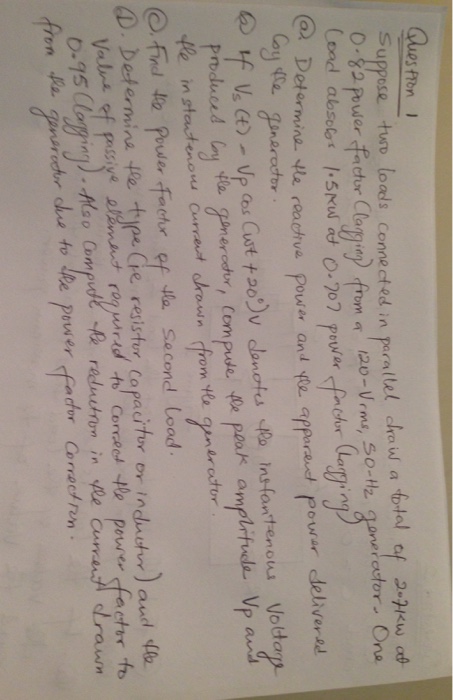 Question 1
Suppose two loads connected in parallel draw a total of 2.4kW at
0.82 power factor (lagging) from a 120-Vrms, 50-Hz generator. One
load absorbs 1.5kW at 0.707 power factor (lagging)
(a). Determine the reactive power and the apparent power delivered
by the generator.
(b) If Vs(t) = Vp cos(wt + 20°)V denotes the instantenous voltage
produced by the generator, compute the peak amplitude Vp and
the instantenous current drawn from the generator.
(c). Find the power factor of the second load.
(d). Determine the type (ie resistor capacitor or inductor) and the
value of passive element required to correct the power factor to
0.95 (lagging). Also compute the reduction in the current drawn
from the generator due to the power factor correction.